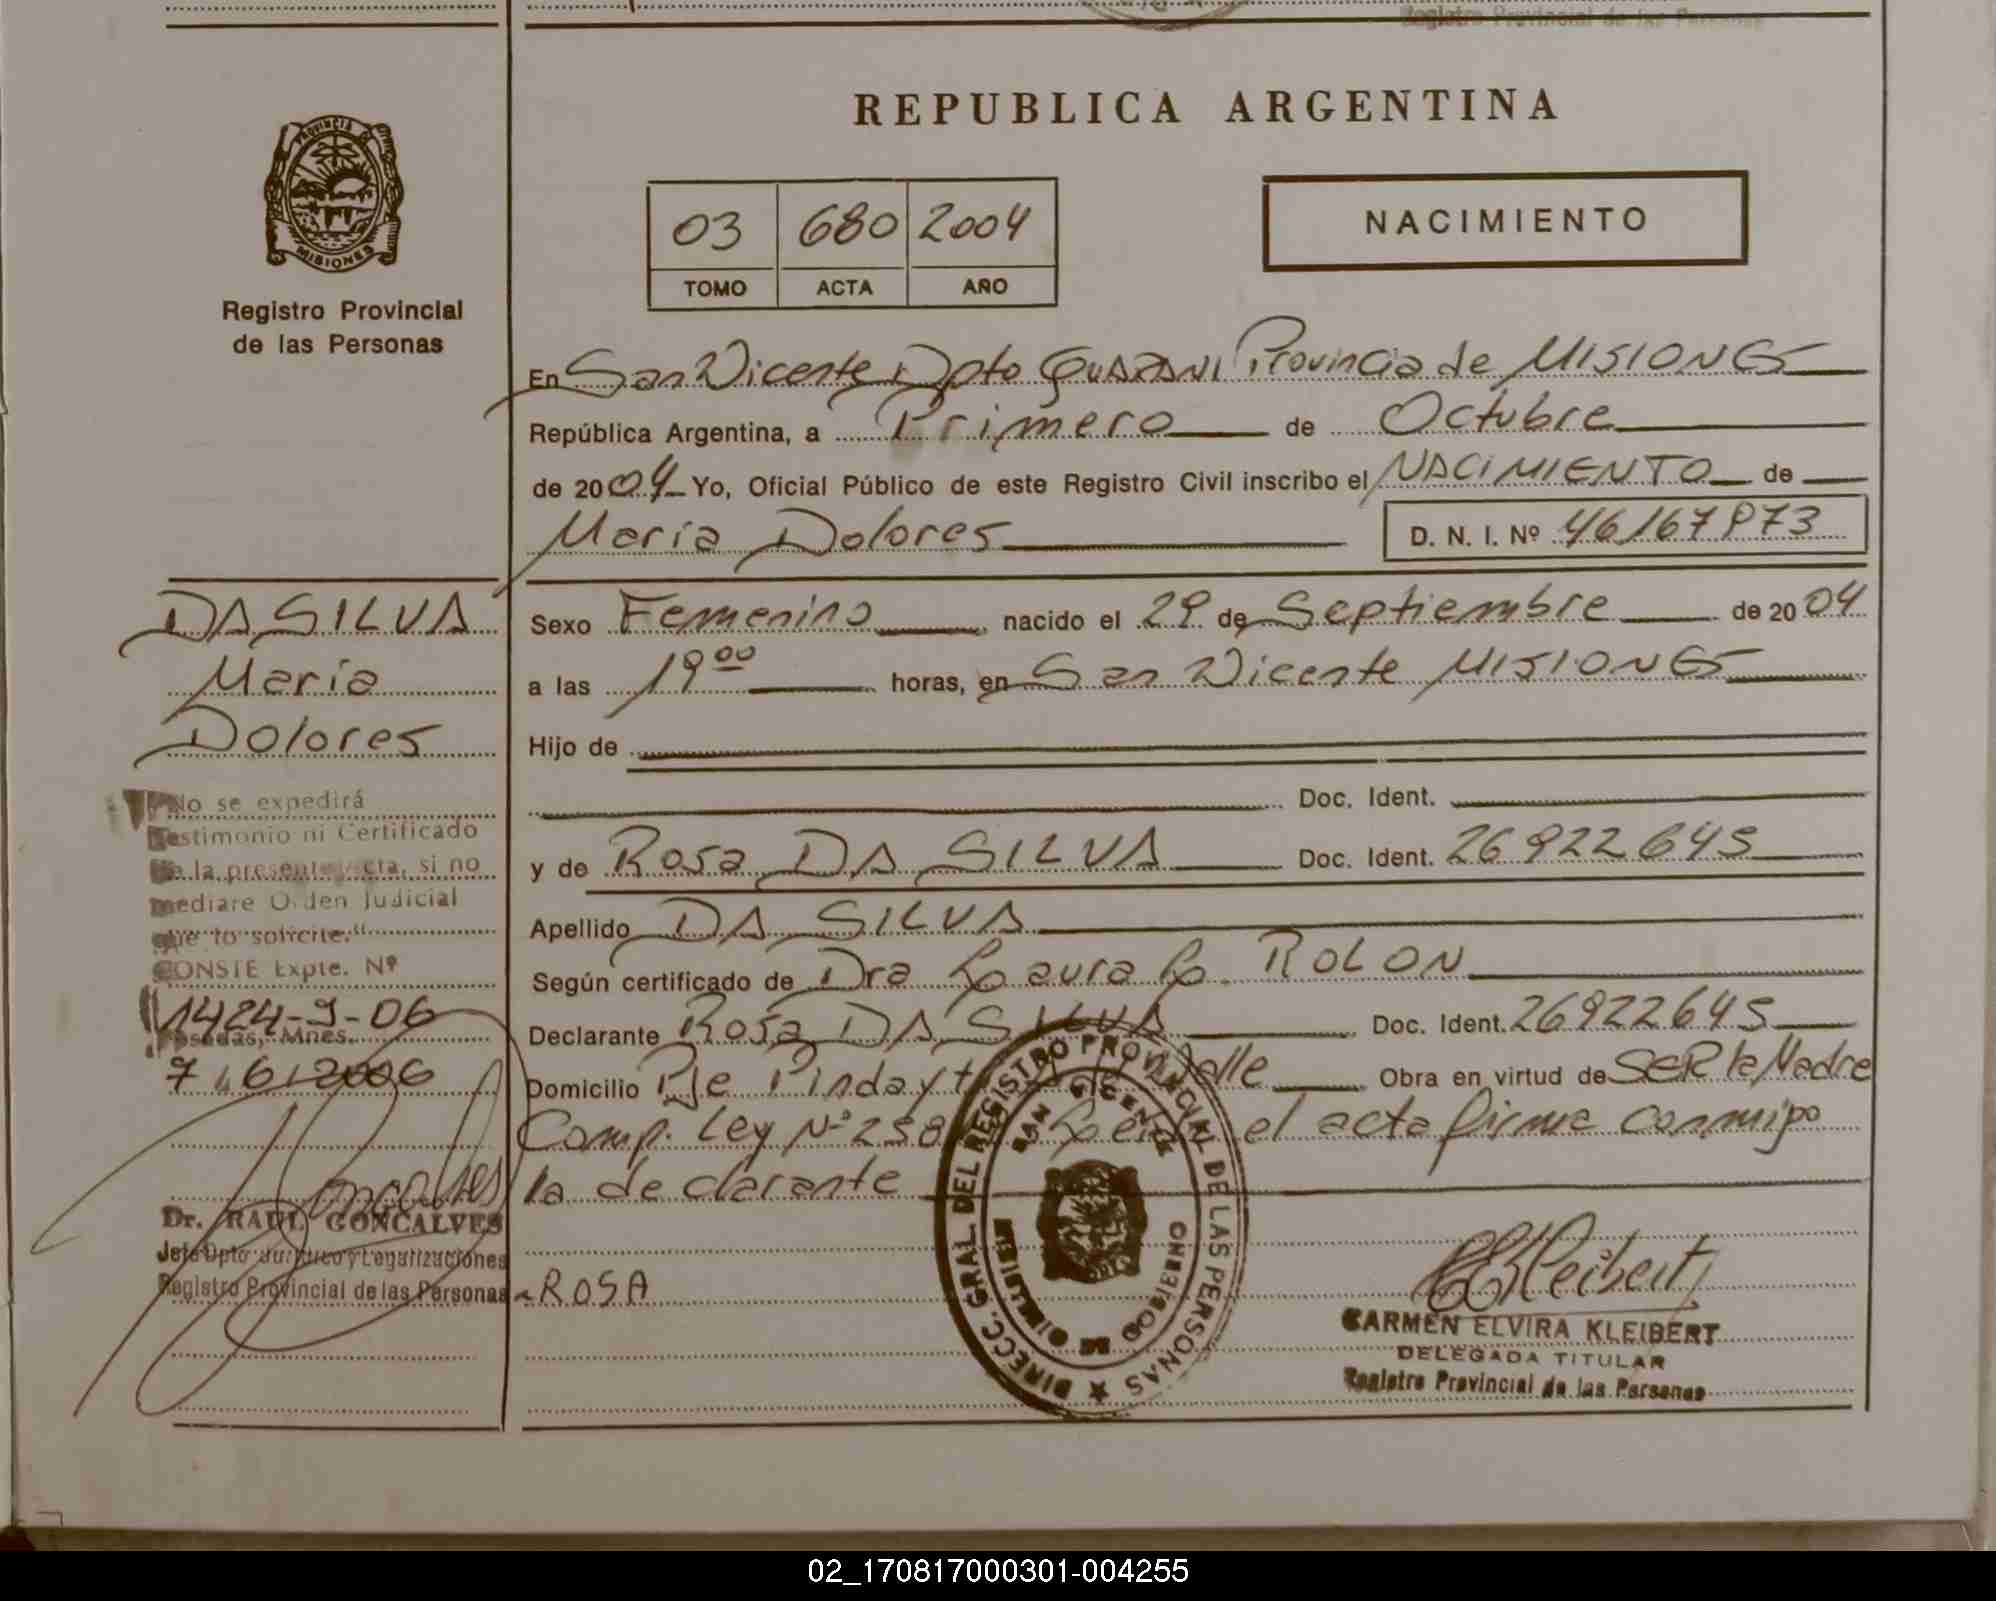 Registro Provincial de las Personas
REPUBLICA ARGENTINA
PROVINCIA DE
MISIONES
Registro Provincial
de las Personas
03 680 2004
TOMO ACTA AÑO
NACIMIENTO
En San Vicente Dpto GUARANI Provincia de MISIONES
República Argentina, a Primero de Octubre
de 2004 Yo, Oficial Público de este Registro Civil inscribo el NACIMIENTO de
María Dolores D. N. I. Nº 46167973
DA SILVA
María
Dolores
Sexo Femenino nacido el 29 de Septiembre de 2004
a las 19 00 horas, en San Vicente MISIONES
Hijo de
Doc. Ident.
y de Rosa DA SILVA Doc. Ident. 26922645
Apellido DA SILVA
Según certificado de Dra Laura L. ROLON
Declarante Rosa DA SILVA Doc. Ident. 26922645
Domicilio Pje Pindayt Calle Obra en virtud de SER la Madre
Comp. Ley Nº 258 Leida el acta firma conmigo
la declarante
No se expedirá
Testimonio ni Certificado
de la presente Acta, si no
mediare Orden Judicial
que lo solicite."
CONSTE Expte. Nº
1424-9-06
Posadas, Mnes.
7 6 2006
Goncalves
Dr. RAUL GONCALVES
Jefe Dpto Jurídico y Legalizaciones
Registro Provincial de las Personas
ROSA
DIRECC. GRAL. DEL REGISTRO PROVINCIAL DE LAS PERSONAS
SAN VICENTE
MINISTERIO DE GOBIERNO
CEKleibert
CARMEN ELVIRA KLEIBERT
DELEGADA TITULAR
Registro Provincial de las Personas
02_170817000301-004255